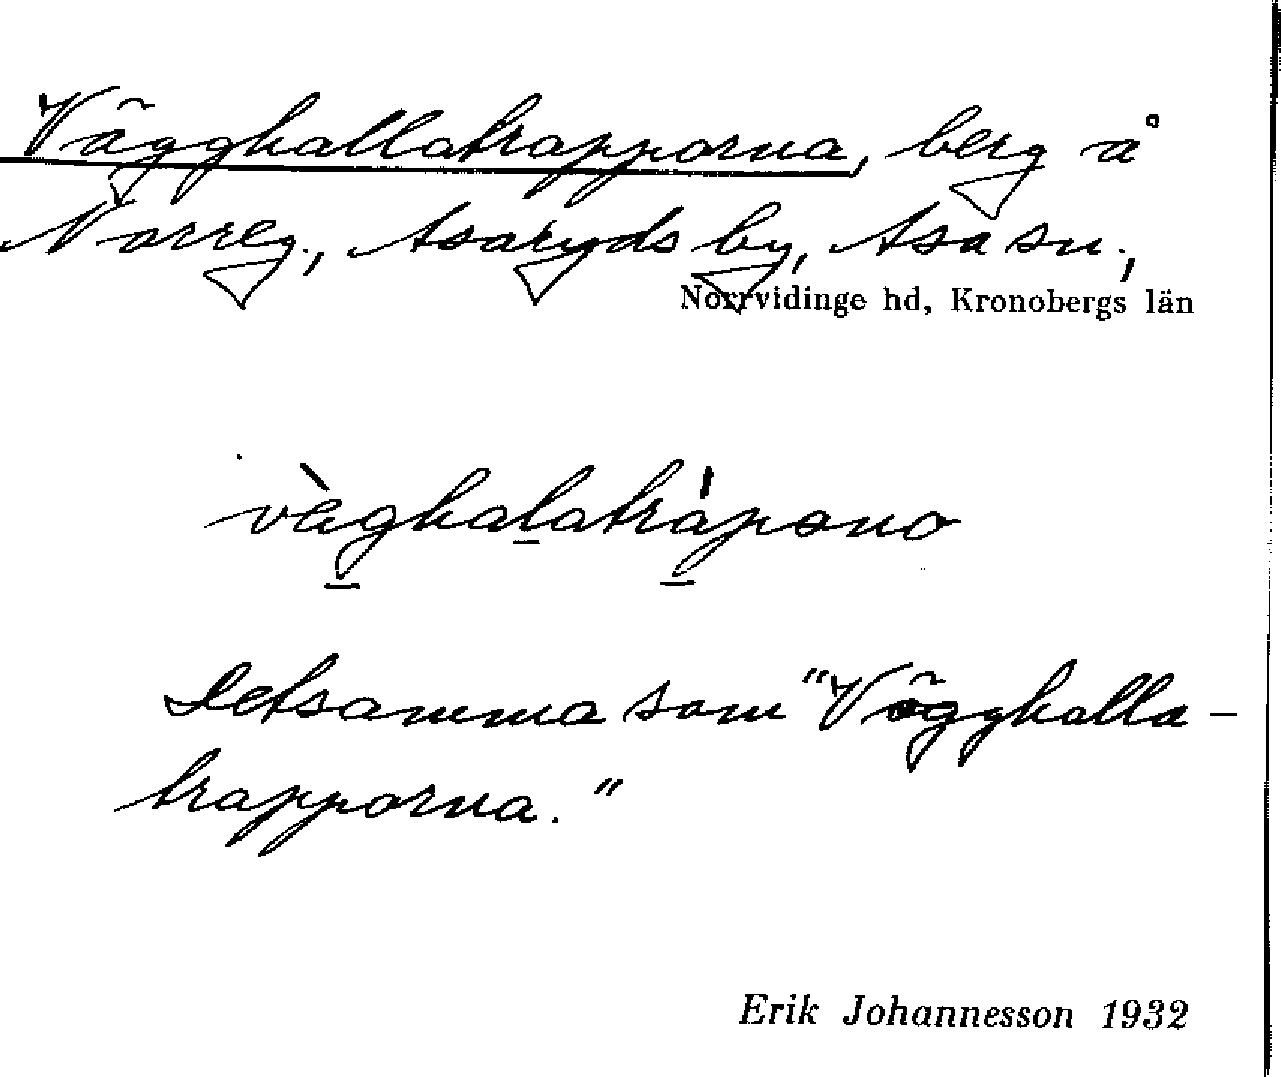 Vägghallatrapporna, berg å
Norreg., Asaryds by, Asa sn.,
Norrvidinge hd, Kronobergs län
vὲghalatrápono
Detsamma som "Vägghalla-
trapporna."
Erik Johannesson 1932